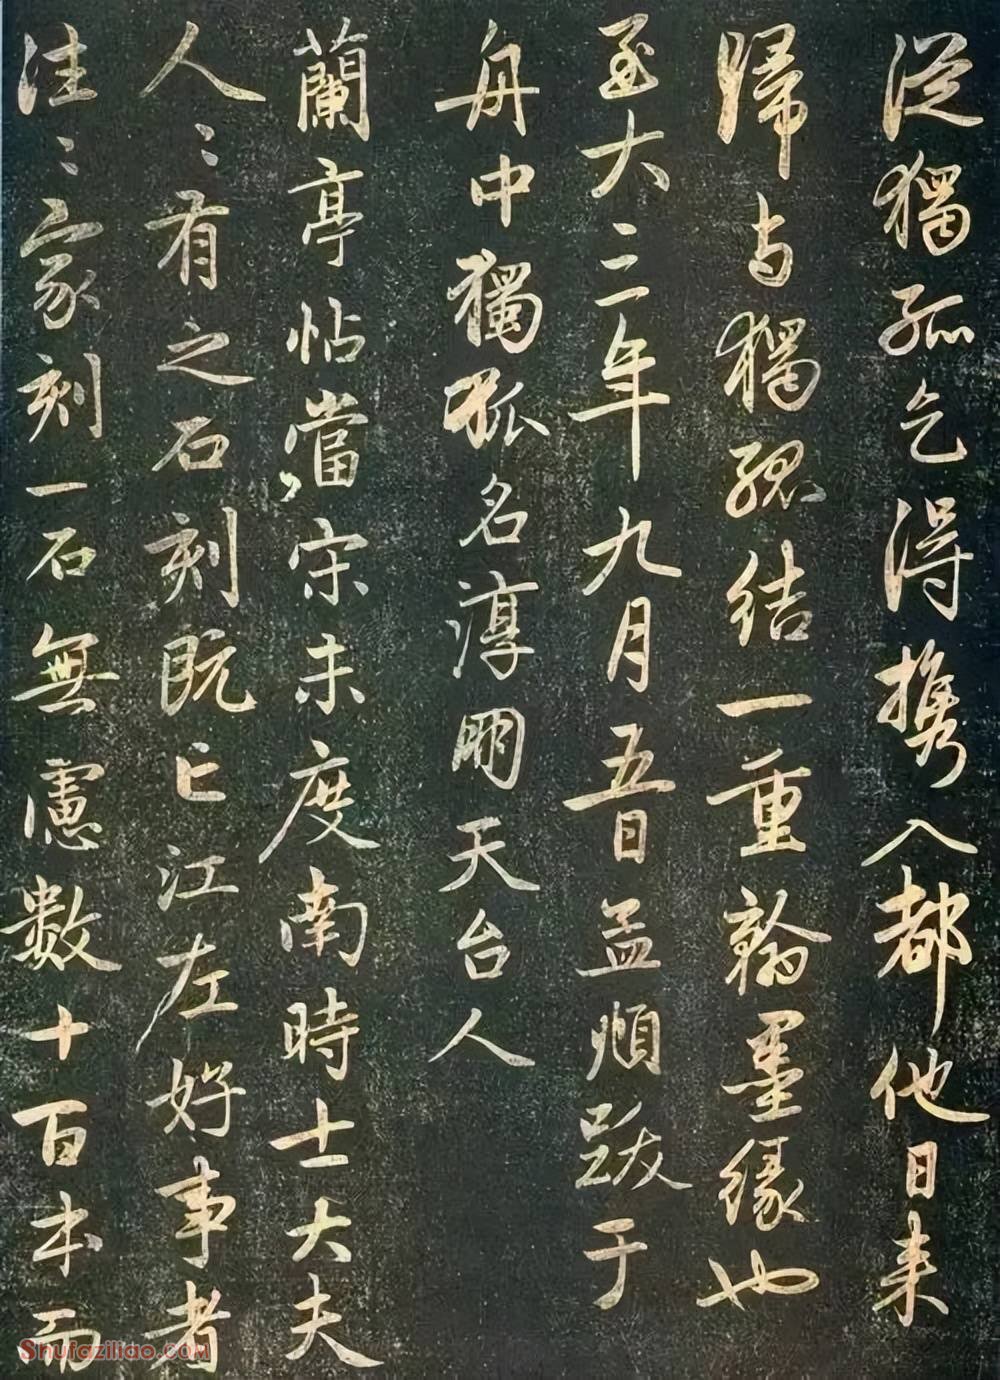 從獨孤乞得携入都他日来
歸与獨孤結一重翰墨緣也
至大三年九月五日孟頫跋于
舟中獨孤名淳朋天台人
蘭亭帖當宋未度南時士大夫
人〻有之石刻既亡江左好事者
往〻家刻一石無慮數十百本而
Shufaziliao.COM